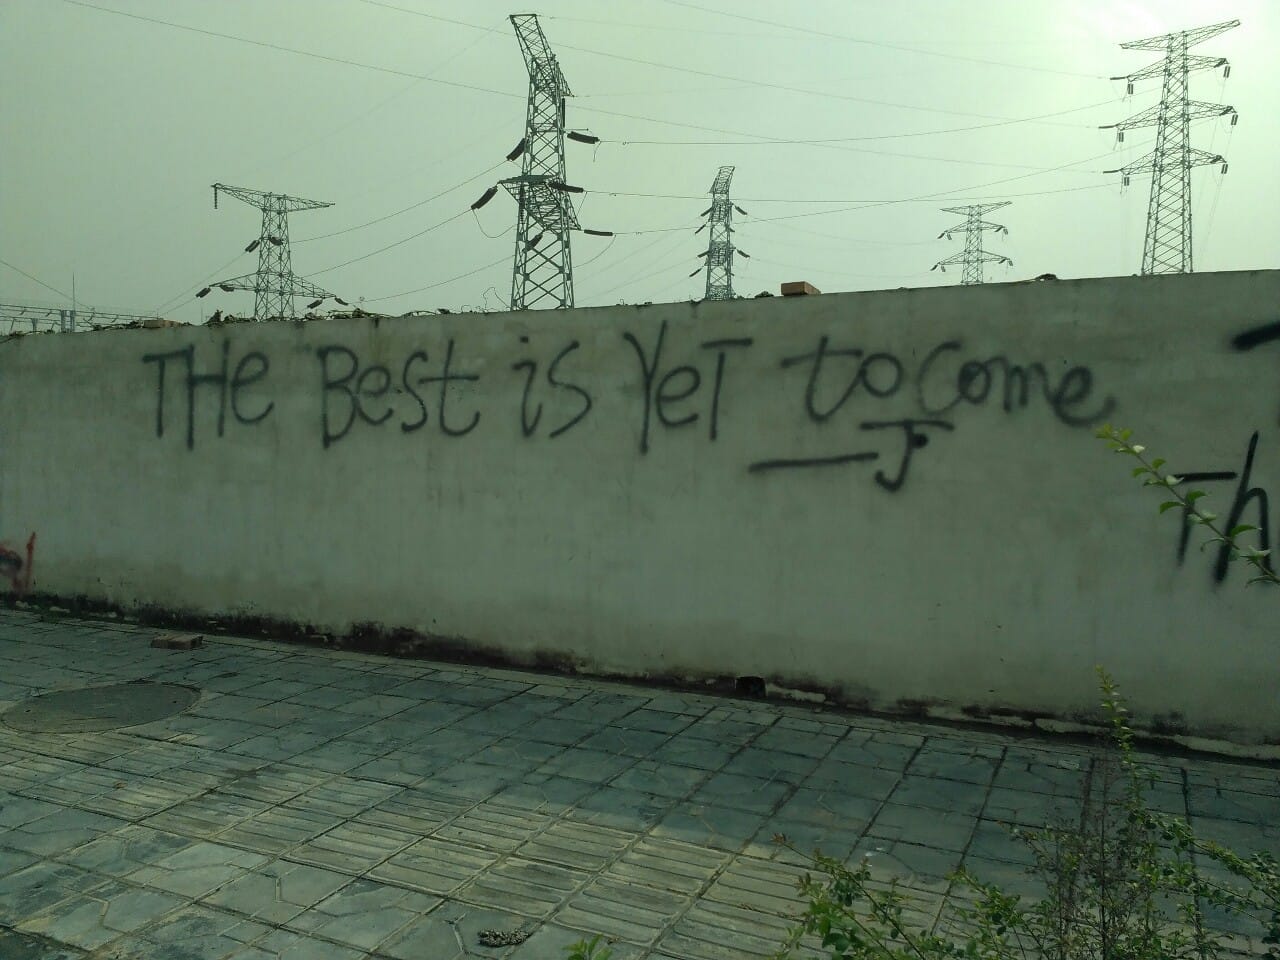 THe Best is YeT to come
— J
Th